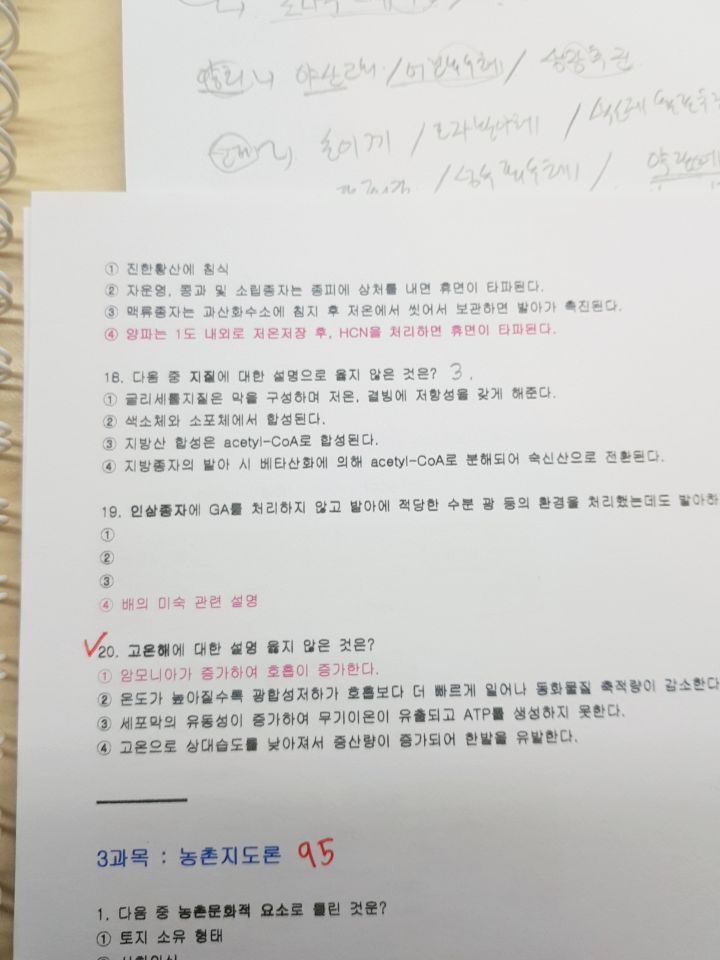 ① 진한황산에 침식
② 자운영, 콩과 및 소립종자는 종피에 상처를 내면 휴면이 타파된다.
③ 맥류종자는 과산화수소에 침지 후 저온에서 씻어서 보관하면 발아가 촉진된다.
④ 양파는 1도 내외로 저온저장 후, HCN을 처리하면 휴면이 타파된다.
18. 다음 중 지질에 대한 설명으로 옳지 않은 것은? 3.
① 글리세롤지질은 막을 구성하며 저온, 결빙에 저항성을 갖게 해준다.
② 색소체와 소포체에서 합성된다.
③ 지방산 합성은 acetyl-CoA로 합성된다.
④ 지방종자의 발아 시 베타산화에 의해 acetyl-CoA로 분해되어 숙신산으로 전환된다.
19. 인삼종자에 GA를 처리하지 않고 발아에 적당한 수분 광 등의 환경을 처리했는데도 발아하
①
②
③
④ 배의 미숙 관련 설명
20. 고온해에 대한 설명 옳지 않은 것은?
① 암모니아가 증가하여 호흡이 증가한다.
② 온도가 높아질수록 광합성저하가 호흡보다 더 빠르게 일어나 동화물질 축적량이 감소한다
③ 세포막의 유동성이 증가하여 무기이온이 유출되고 ATP를 생성하지 못한다.
④ 고온으로 상대습도를 낮아져서 증산량이 증가되어 한발을 유발한다.
3과목 : 농촌지도론 95
1. 다음 중 농촌문화적 요소로 틀린 것은?
① 토지 소유 형태